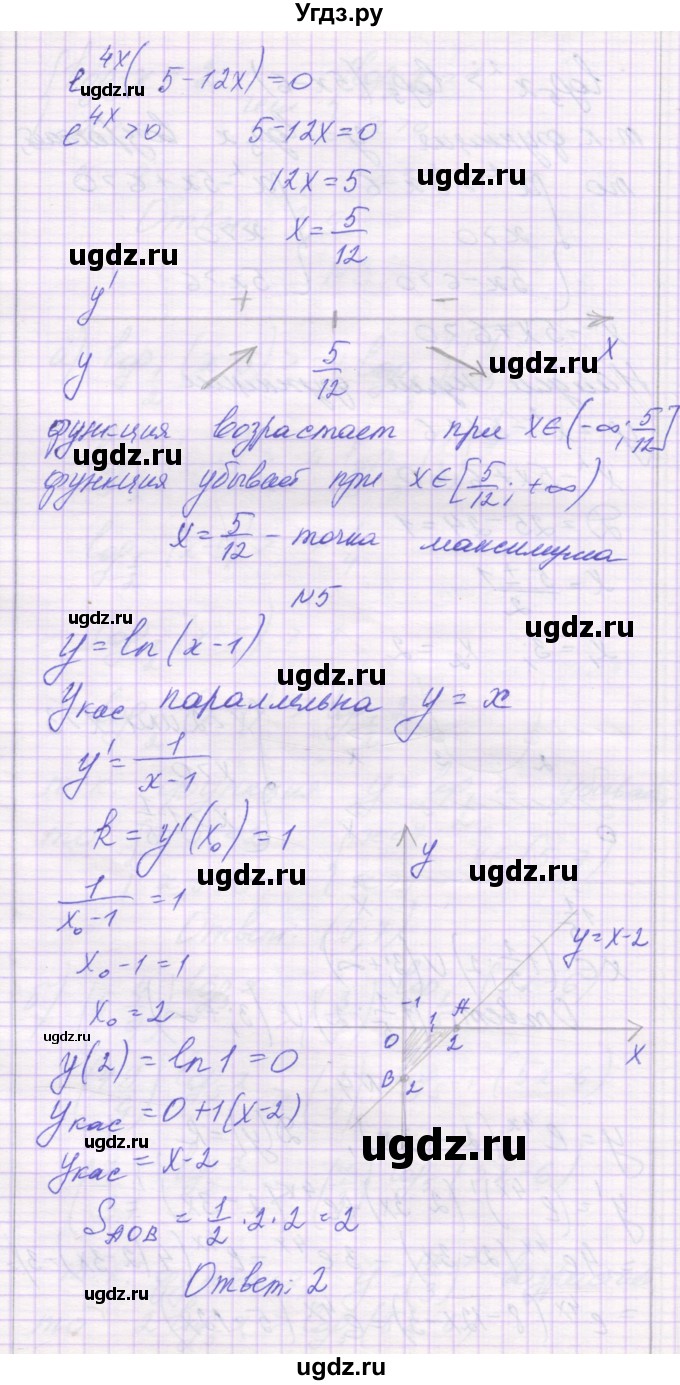 Угдз.ру
e^{4x}(5-12x)=0
ugdz.ru
e^{4x}>0 5-12x=0
12x=5 ugdz.ru
x=5/12
ugdz.ru
y' + - x
ugdz.ru
y 5/12
функция возрастает при x∈(-∞; 5/12]
ugdz.ru
функция убывает при x∈[5/12; +∞)
x=5/12 - точка максимума
№5
ugdz.ru ugdz.ru
y=ln(x-1)
ugdz.ru
y кас параллельна y=x
y'=1/(x-1)
k=y'(x₀)=1
ugdz.ru ugdz.ru
y
1/(x₀-1)=1
y=x-2
x₀-1=1
x₀=2
-1 1 A
0 2 x
ugdz.ru
y(2)=ln1=0
B 2
y кас=0+1(x-2)
ugdz.ru ugdz.ru
y кас=x-2
S AOB=1/2·2·2=2
Ответ: 2
ugdz.ru
ugdz.ru